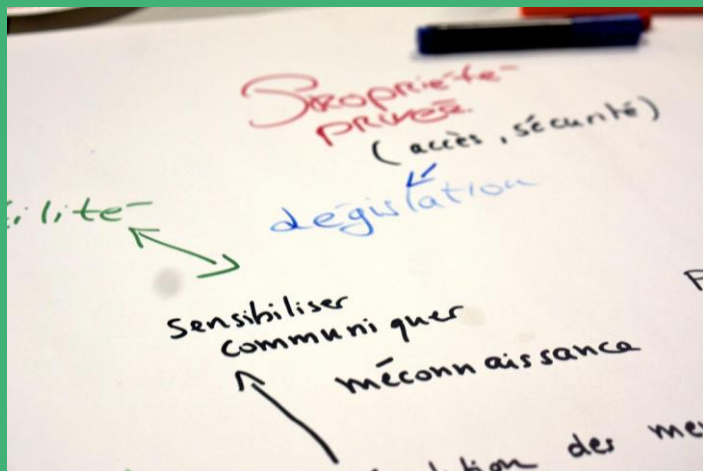 Propriété
privée
(accès, sécurité)
législation
ilité
sensibiliser
communiquer
méconnaissance
des